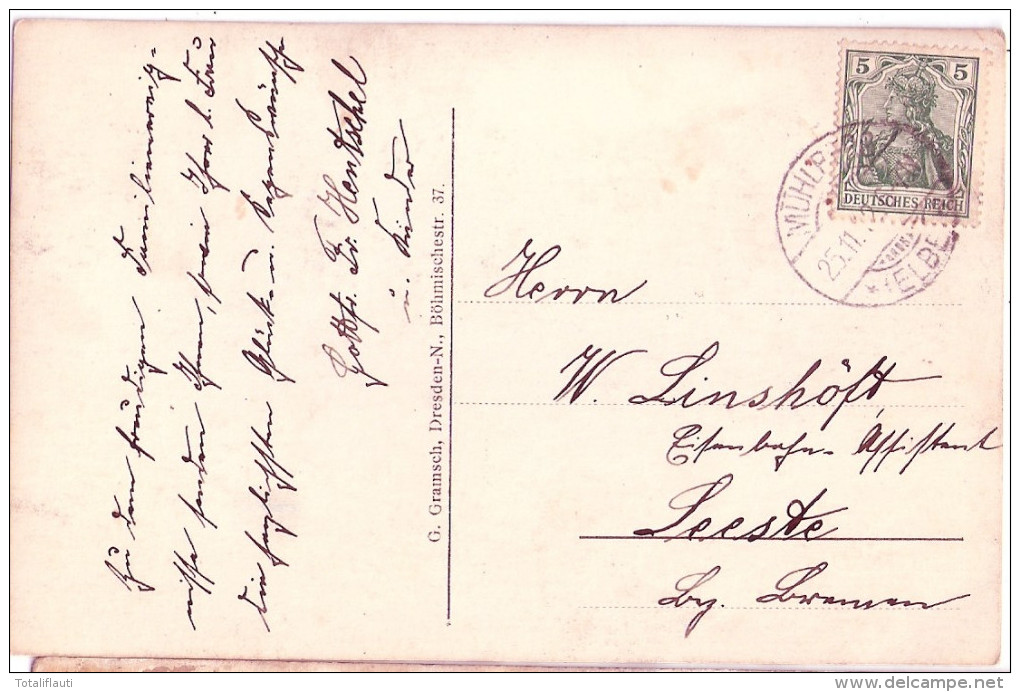 Zu dem freudigen Familienereig-
nisse senden Ihnen, sowie Ihrer l. Frau
die herzlichsten Glück- u. Segenswünsche
Gottfr. Fr. Hentschel
u. Kinder
G. Gramsch, Dresden-N., Böhmischestr. 37.
5 5
DEUTSCHES REICH
MÜHLB
25.11.
*(ELBE
Herrn
W. Linshöft
Eisenbahn-Assistent
Leeste
Bz. Bremen
Totaliflauti
www.delcampe.net